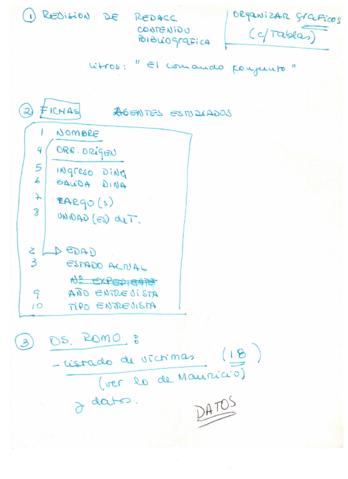 ① REVISION DE REDACC
CONTENIDO
BIBLIOGRAFICA
ORGANIZAR GRAFICOS
(c/Tablas)
Libros: "El comando conjunto"
② FICHAS AGENTES ESTUDIADOS
1 NOMBRE
4 ORG. ORIGEN
5 INGRESO DINA
6 SALIDA DINA
7 CARGO(S)
8 UNIDAD(ES) de T.
2 EDAD
3 ESTADO ACTUAL
Nº EXPEDIENTE
9 AÑO ENTREVISTA
10 TIPO ENTREVISTA
③ OS. ROMO:
- Listado de víctimas (18)
(ver lo de Mauricio)
y datos.
DATOS